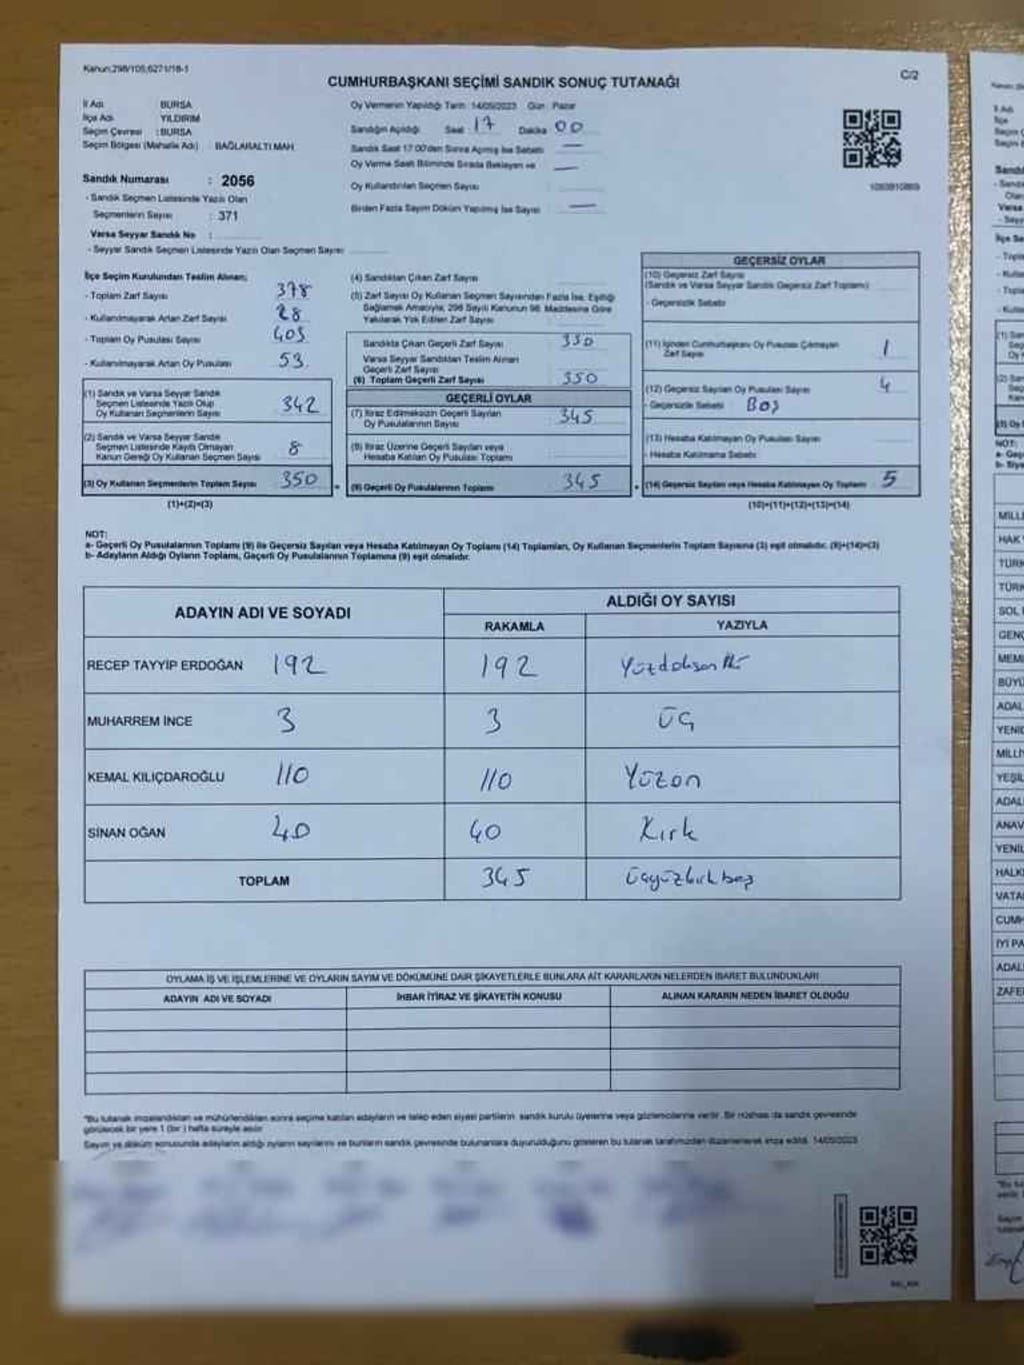 Kanun:298/105,6271/18-1
C/2
CUMHURBAŞKANI SEÇİMİ SANDIK SONUÇ TUTANAĞI
İl Adı BURSA
İlçe Adı YILDIRIM
Seçim Çevresi : BURSA
Seçim Bölgesi (Mahalle Adı) BAĞLARALTI MAH.
Sandık Numarası : 2056
- Sandık Seçmen Listesinde Yazılı Olan
Seçmenlerin Sayısı : 371
Varsa Seyyar Sandık No :
- Seyyar Sandık Seçmen Listesinde Yazılı Olan Seçmen Sayısı
Oy Vermenin Yapıldığı Tarih: 14/05/2023 Gün : Pazar
Sandığın Açıldığı Saat : 17 Dakika 00
Sandık Saat 17:00'den Sonra Açılmış İse Sebebi : —
Oy Verme Saati Bitiminde Sırada Bekleyen ve —
Oy Kullandırılan Seçmen Sayısı
Birden Fazla Sayım Döküm Yapılmış İse Sayısı —
İlçe Seçim Kurulundan Teslim Alınan;
- Toplam Zarf Sayısı 378
- Kullanılmayarak Artan Zarf Sayısı 28
- Toplam Oy Pusulası Sayısı 403
- Kullanılmayarak Artan Oy Pusulası 53
(1) Sandık ve Varsa Seyyar Sandık
Seçmen Listesinde Yazılı Olup
Oy Kullanan Seçmenlerin Sayısı 342
(2) Sandık ve Varsa Seyyar Sandık
Seçmen Listesinde Kayıtlı Olmayan
Kanun Gereği Oy Kullanan Seçmen Sayısı 8
(3) Oy Kullanan Seçmenlerin Toplam Sayısı 350
(1)+(2)=(3)
(4) Sandıktan Çıkan Zarf Sayısı
(5) Zarf Sayısı Oy Kullanan Seçmen Sayısından Fazla İse, Eşitliği
Sağlamak Amacıyla; 298 Sayılı Kanunun 98. Maddesine Göre
Yakılarak Yok Edilen Zarf Sayısı
Sandıkta Çıkan Geçerli Zarf Sayısı 350
Varsa Seyyar Sandıktan Teslim Alınan
Geçerli Zarf Sayısı
(6) Toplam Geçerli Zarf Sayısı 350
GEÇERLİ OYLAR
(7) İtiraz Edilmeksizin Geçerli Sayılan
Oy Pusulalarının Sayısı 345
(8) İtiraz Üzerine Geçerli Sayılan veya
Hesaba Katılan Oy Pusulası Toplamı
= (9) Geçerli Oy Pusulalarının Toplamı 345
GEÇERSİZ OYLAR
(10) Geçersiz Zarf Sayısı
(Sandık ve Varsa Seyyar Sandık Geçersiz Zarf Toplamı)
- Geçersizlik Sebebi
(11) İçinden Cumhurbaşkanı Oy Pusulası Çıkmayan
Zarf Sayısı 1
(12) Geçersiz Sayılan Oy Pusulası Sayısı 4
- Geçersizlik Sebebi Boş
(13) Hesaba Katılmayan Oy Pusulası Sayısı
- Hesaba Katılmama Sebebi
+ (14) Geçersiz Sayılan veya Hesaba Katılmayan Oy Toplamı 5
(10)+(11)+(12)+(13)=(14)
NOT:
a- Geçerli Oy Pusulalarının Toplamı (9) ile Geçersiz Sayılan veya Hesaba Katılmayan Oy Toplamı (14) Toplamları, Oy Kullanan Seçmenlerin Toplam Sayısına (3) eşit olmalıdır. (9)+(14)=(3)
b- Adayların Aldığı Oyların Toplamı, Geçerli Oy Pusulalarının Toplamına (9) eşit olmalıdır.
ADAYIN ADI VE SOYADI
ALDIĞI OY SAYISI
RAKAMLA YAZIYLA
RECEP TAYYİP ERDOĞAN 192 192 Yüzdoksan iki
MUHARREM İNCE 3 3 üç
KEMAL KILIÇDAROĞLU 110 110 Yüzon
SİNAN OĞAN 40 40 Kırk
TOPLAM 345 üçyüzkırkbeş
OYLAMA İŞ VE İŞLEMLERİNE VE OYLARIN SAYIM VE DÖKÜMÜNE DAİR ŞİKAYETLERLE BUNLARA AİT KARARLARIN NELERDEN İBARET BULUNDUKLARI
ADAYIN ADI VE SOYADI İHBAR İTİRAZ VE ŞİKAYETİN KONUSU ALINAN KARARIN NEDEN İBARET OLDUĞU
*Bu tutanak imzalandıktan ve mühürlendikten sonra seçime katılan adayların ve talep eden siyasi partilerin sandık kurulu üyelerine veya gözlemcilerine verilir. Bir nüshası da sandık çevresinde
görülecek bir yere 1 (bir) hafta süreyle asılır.
Sayım ve döküm sonucunda adayların aldığı oyların sayılarını ve bunların sandık çevresinde bulunanlara duyurulduğunu gösteren bu tutanak tarafımızdan düzenlenerek imza edildi. 14/05/2023
MİLLİ
HAK
TÜRK
TÜRK
SOL
GENÇ
MEM
BÜYÜ
ADAL
YENİD
MİLLİY
YEŞİL
ADAL
ANAV
YENİL
HALKI
VATA
CUMH
İYİ PA
ADAL
ZAFE